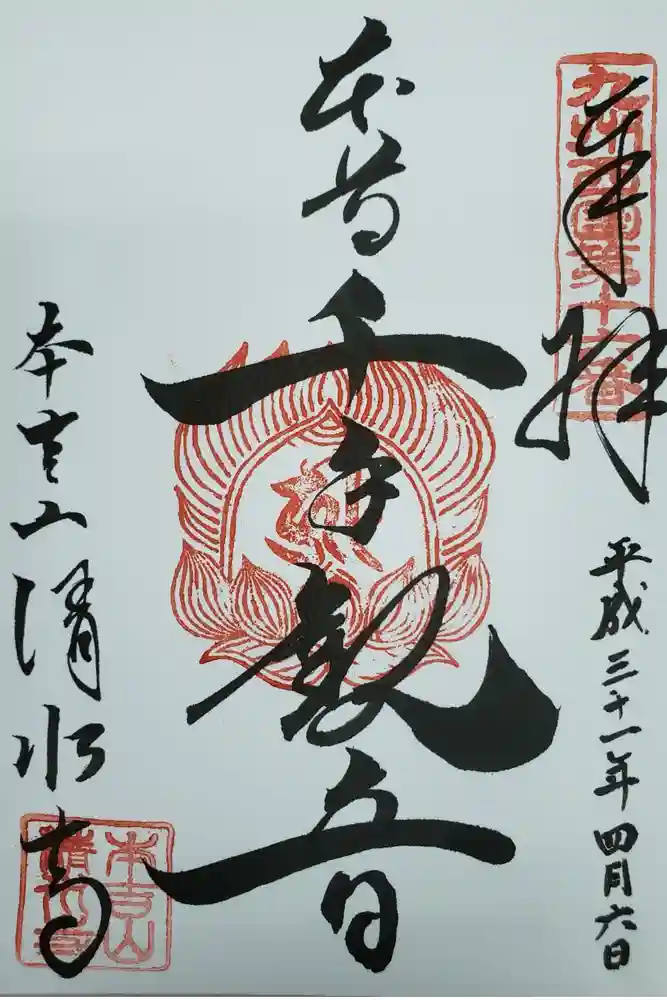 九州西国第十六番
奉拝
平成三十一年四月六日
本尊千手観音
本吉山清水寺
本吉山
清水寺